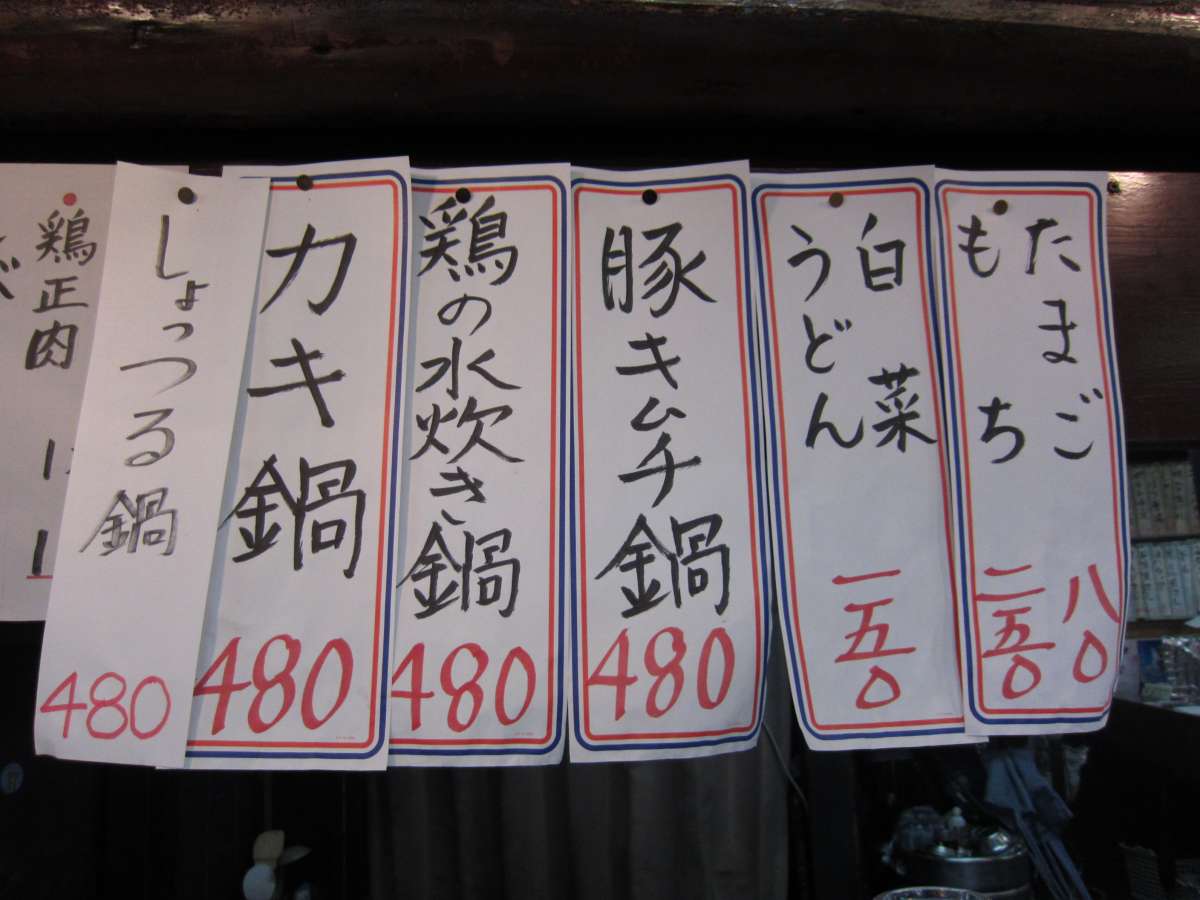 たまご 八0
もち 二五0
白菜
うどん
一五0
豚キムチ鍋
480
鶏の水炊き鍋
480
カキ鍋
480
しょっつる鍋
480
鶏正肉